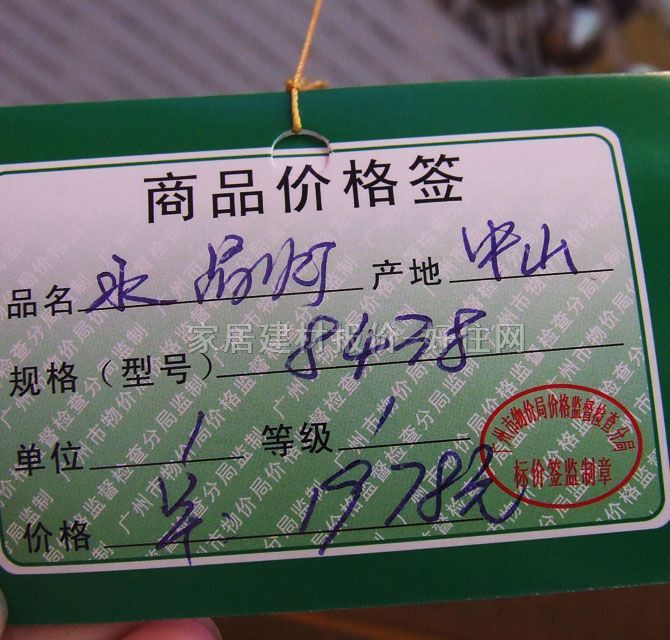 商品价格签
品名 水晶灯 产地 中山
家居建材报价-好住网
规格（型号） 8438
单位 1 等级 1
广州市物价局价格监督检查分局
标价签监制章
价格 羊. 1978元
广州市物价局价格监督检查分局监制